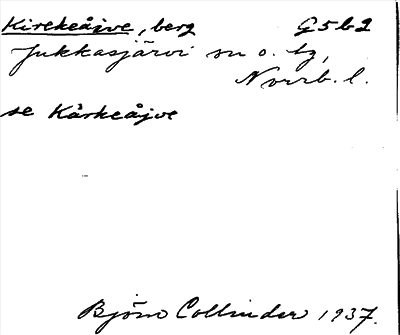 Kirekeåjve, berg G5b2
Jukkasjärvi sn o. tg,
Norrb. l.
se Kårkeåjve
Björn Collinder 1937.